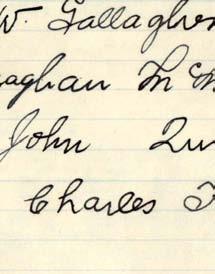 W. Gallagher
aghan M
John Qu
Charles